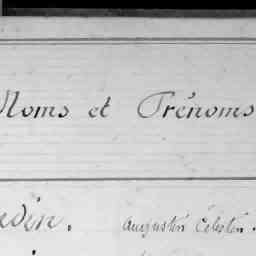 Noms et Prénoms
edin. Augustin Célestin.